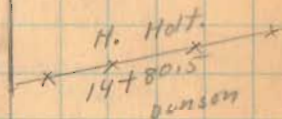 H. Holt.
14+80.5
Dunson